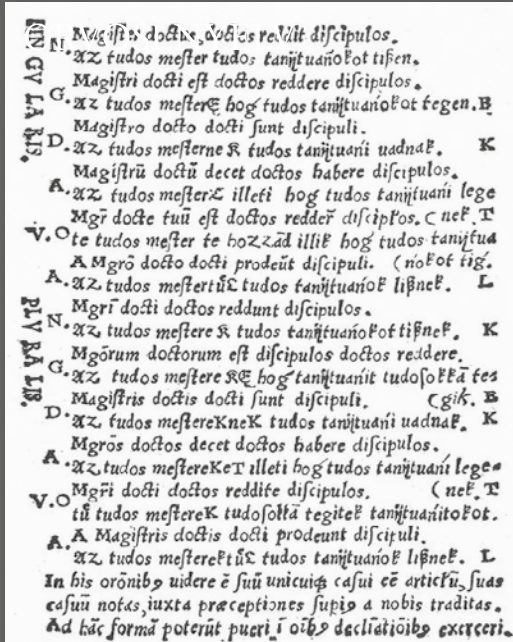 SINGVLARIS.
N. Magiſtri docti, doctos reddit diſcipulos.
Az tudos meſter tudos tanijtuańoḱot tißen.
G. Magiſtri docti eſt doctos reddere diſcipulos.
Az tudos meſterę hoǵ tudos tanijtuańoḱot tegen. B
D. Magiſtro docto docti ſunt diſcipuli.
Az tudos meſterne K tudos tanijtuańi uadnaḱ. K
A. Magiſtrū doctū decet doctos habere diſcipulos.
Az tudos meſterL illeti hoǵ tudos tanijtuańi lege
V. O Mgr̄ docte tuū eſt doctos redder̄ diſciplos. (neḱ. T
te tudos meſter te hozzād illiḱ hoǵ tudos tanijtua
A. A Mgrō docto docti prodeūt diſcipuli. (noḱot tiǵ.
Az tudos meſtertűL tudos tanijtuańoḱ lißneḱ. L
PLVRALIS.
N. Mgr̄i docti doctos reddunt diſcipulos.
Az tudos meſtere K tudos tanijtuańoḱot tißneḱ. K
G. Mgōrum doctorum eſt diſcipulos doctos reddere.
Az tudos meſtere KE hoǵ tanijtuańit tudoſoḱḱā tes
D. Magiſtris doctis docti ſunt diſcipuli. (giḱ. B
Az tudos meſtereKneK tudos tanijtuańi uadnaḱ. K
A. Mgrōs doctos decet doctos habere diſcipulos.
Az tudos meſtereKeT illeti hoǵ tudos tanijtuańi lege
V. O Mgr̄i docti doctos reddite diſcipulos. (neḱ. T
tű tudos meſtereK tudoſoḱḱā tegiteḱ tanijtuańitoḱot.
A. A Magiſtris doctis docti prodeunt diſcipuli.
Az tudos meſtereḱtűL tudos tanijtuańoḱ lißneḱ. L
In his orōnibꝰ uidere ē ſuū unicuiqꝫ caſui eē articlū, ſuas
caſuū notas, iuxta præceptiones ſupiꝰ a nobis traditas.
Ad hāc formā poterūt pueri ī oībꝰ decliātiōibꝰ exerceri.